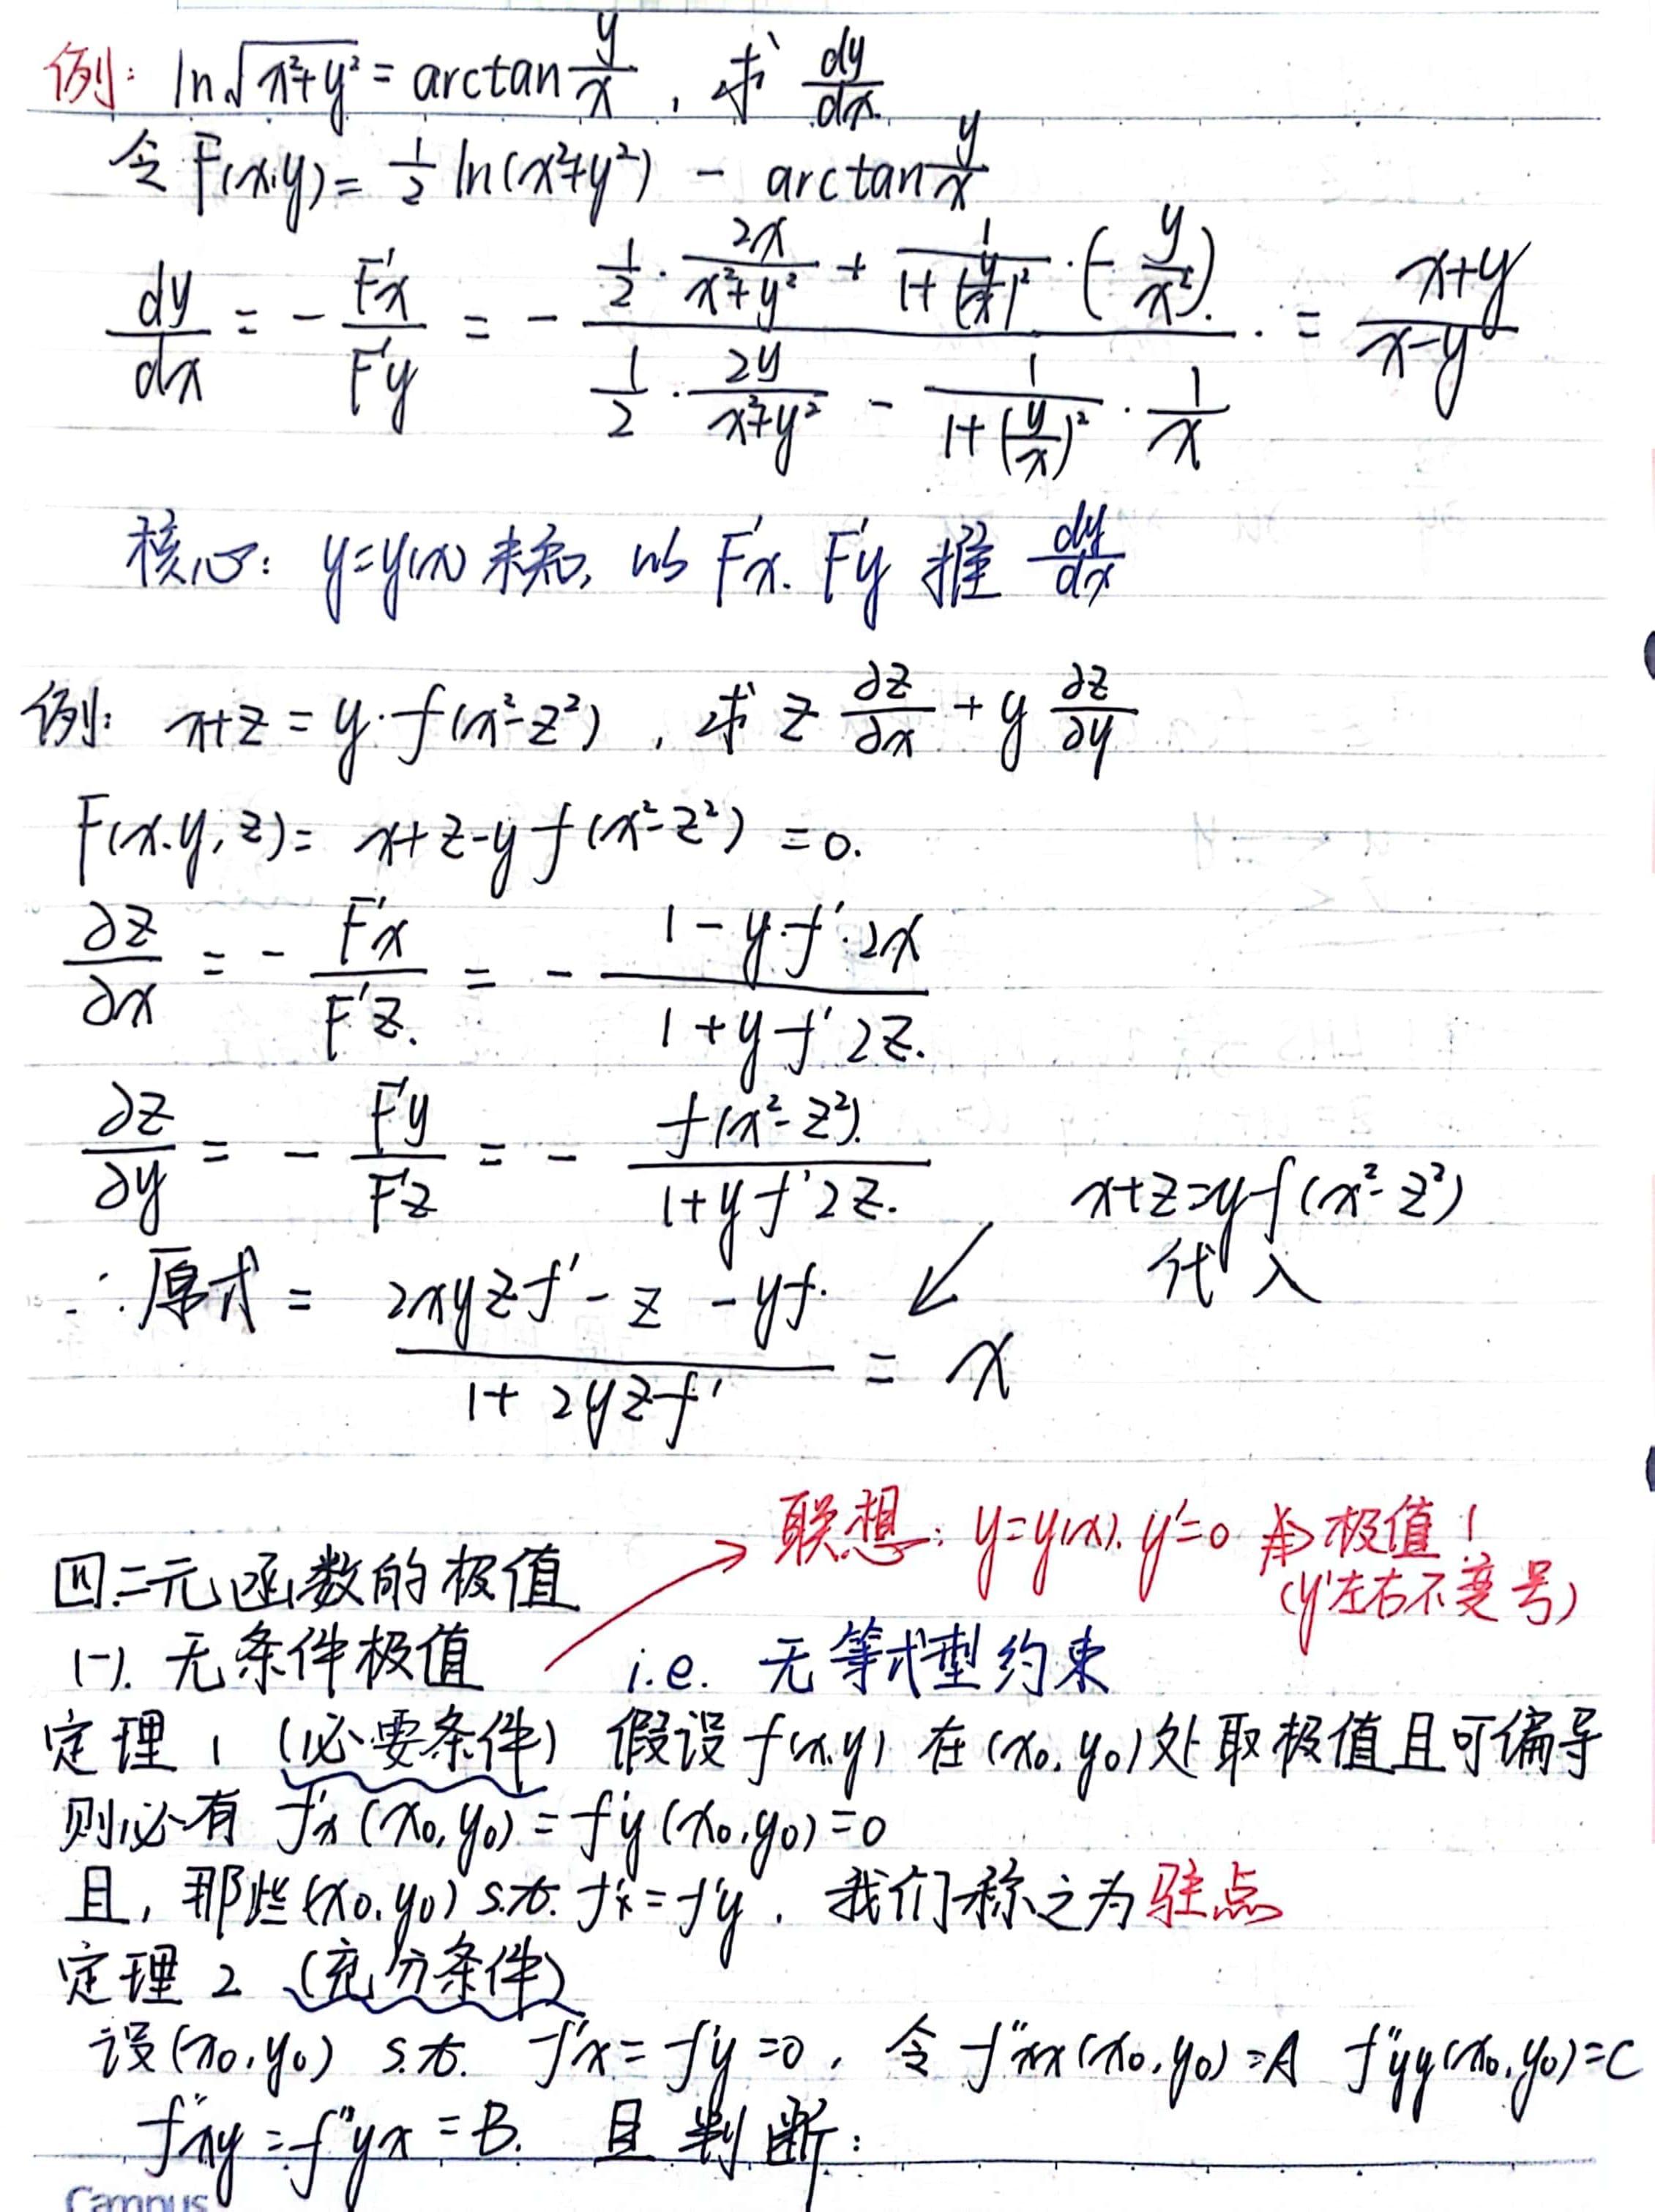 例: ln√(x²+y²) = arctan y/x , 求 dy/dx
令 F(x,y) = 1/2 ln(x²+y²) - arctan y/x
dy/dx = - F'x/F'y = - (1/2 · 2x/(x²+y²) + 1/(1+(y/x)²) · (-y/x²))/(1/2 · 2y/(x²+y²) - 1/(1+(y/x)²) · 1/x) = (x+y)/(x-y)
核心: y=y(x) 未知, 以 F'x. F'y 推 dy/dx
例: x+z = y·f(x²-z²) , 求 z ∂z/∂x + y ∂z/∂y
F(x.y,z) = x+z-yf(x²-z²) = 0.
∂z/∂x = - F'x/F'z. = - (1-y·f'·2x)/(1+yf'2z.)
∂z/∂y = - F'y/F'z = - f(x²-z²)./(1+yf'2z.)
x+z=yf(x²-z²)
代入
∴原式 = (2xyzf'-z-yf.)/(1+2yzf') ↙ = x
联想: y=y(x). y'=0 ⇏ 极值!
(y'左右不变号)
四.二元函数的极值
(一). 无条件极值 i.e. 无等式型约束
定理 1 (必要条件) 假设 f(x.y) 在 (x₀,y₀)处取极值且可偏导
则必有 f'x(x₀,y₀) = f'y(x₀,y₀)=0
且, 那些(x₀,y₀) s.t. f'x=f'y . 我们称之为驻点
定理 2 (充分条件)
设(x₀,y₀) s.t. f'x=f'y=0 , 令 f"xx(x₀,y₀)=A f"yy(x₀,y₀)=C
f"xy=f"yx=B. 且判断:
Campus